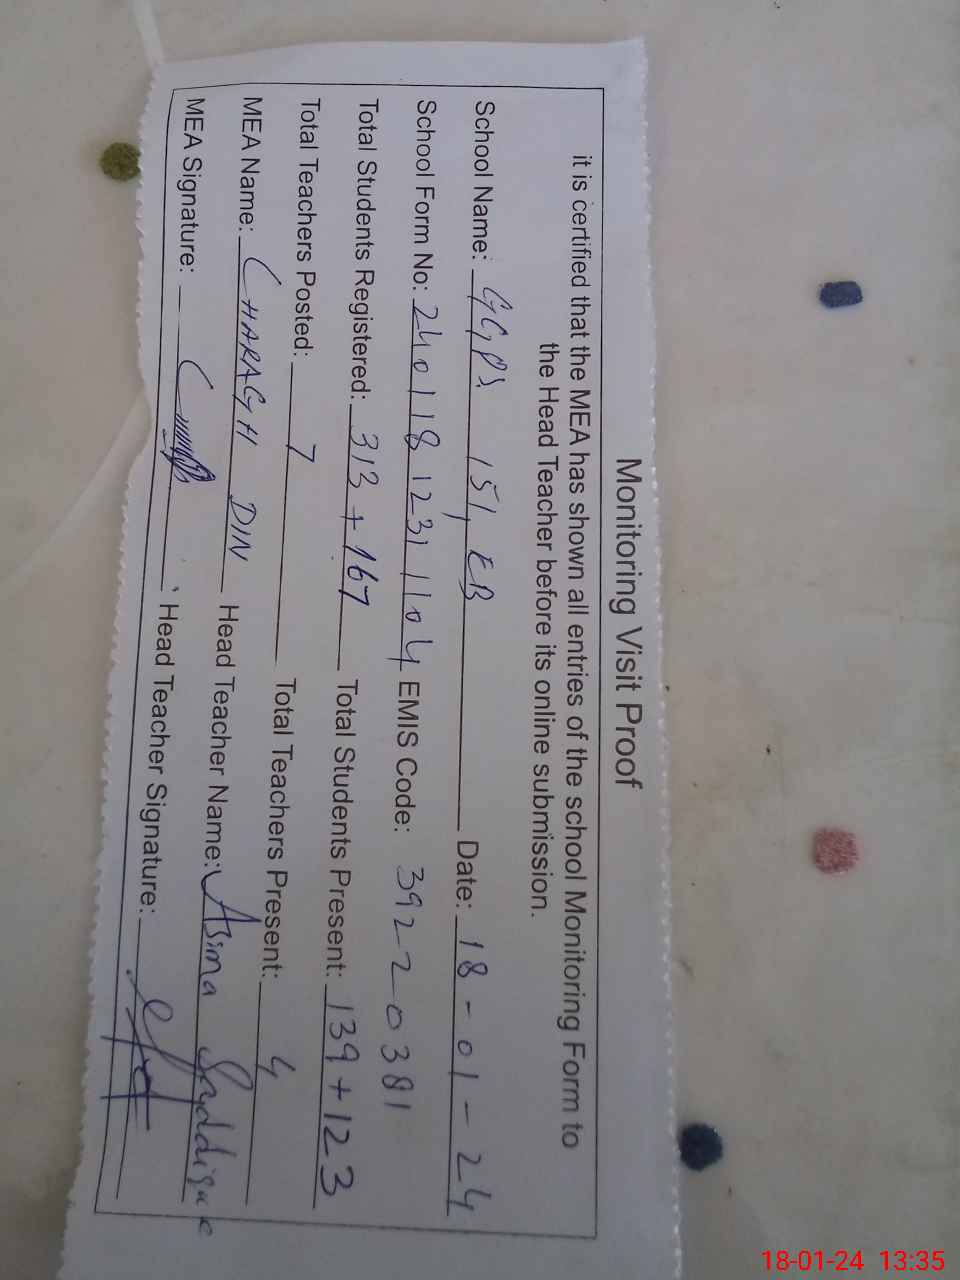 Monitoring Visit Proof
it is certified that the MEA has shown all entries of the school Monitoring Form to
the Head Teacher before its online submission.
School Name: GGPS 151, EB Date: 18-01-24
School Form No: 240118 1231104 EMIS Code: 39220381
Total Students Registered: 313 + 167 Total Students Present: 139 + 123
Total Teachers Posted: 7 Total Teachers Present: 4
MEA Name: CHARAGH DIN Head Teacher Name: Asima Syddique
MEA Signature: Head Teacher Signature:
18-01-24 13:35